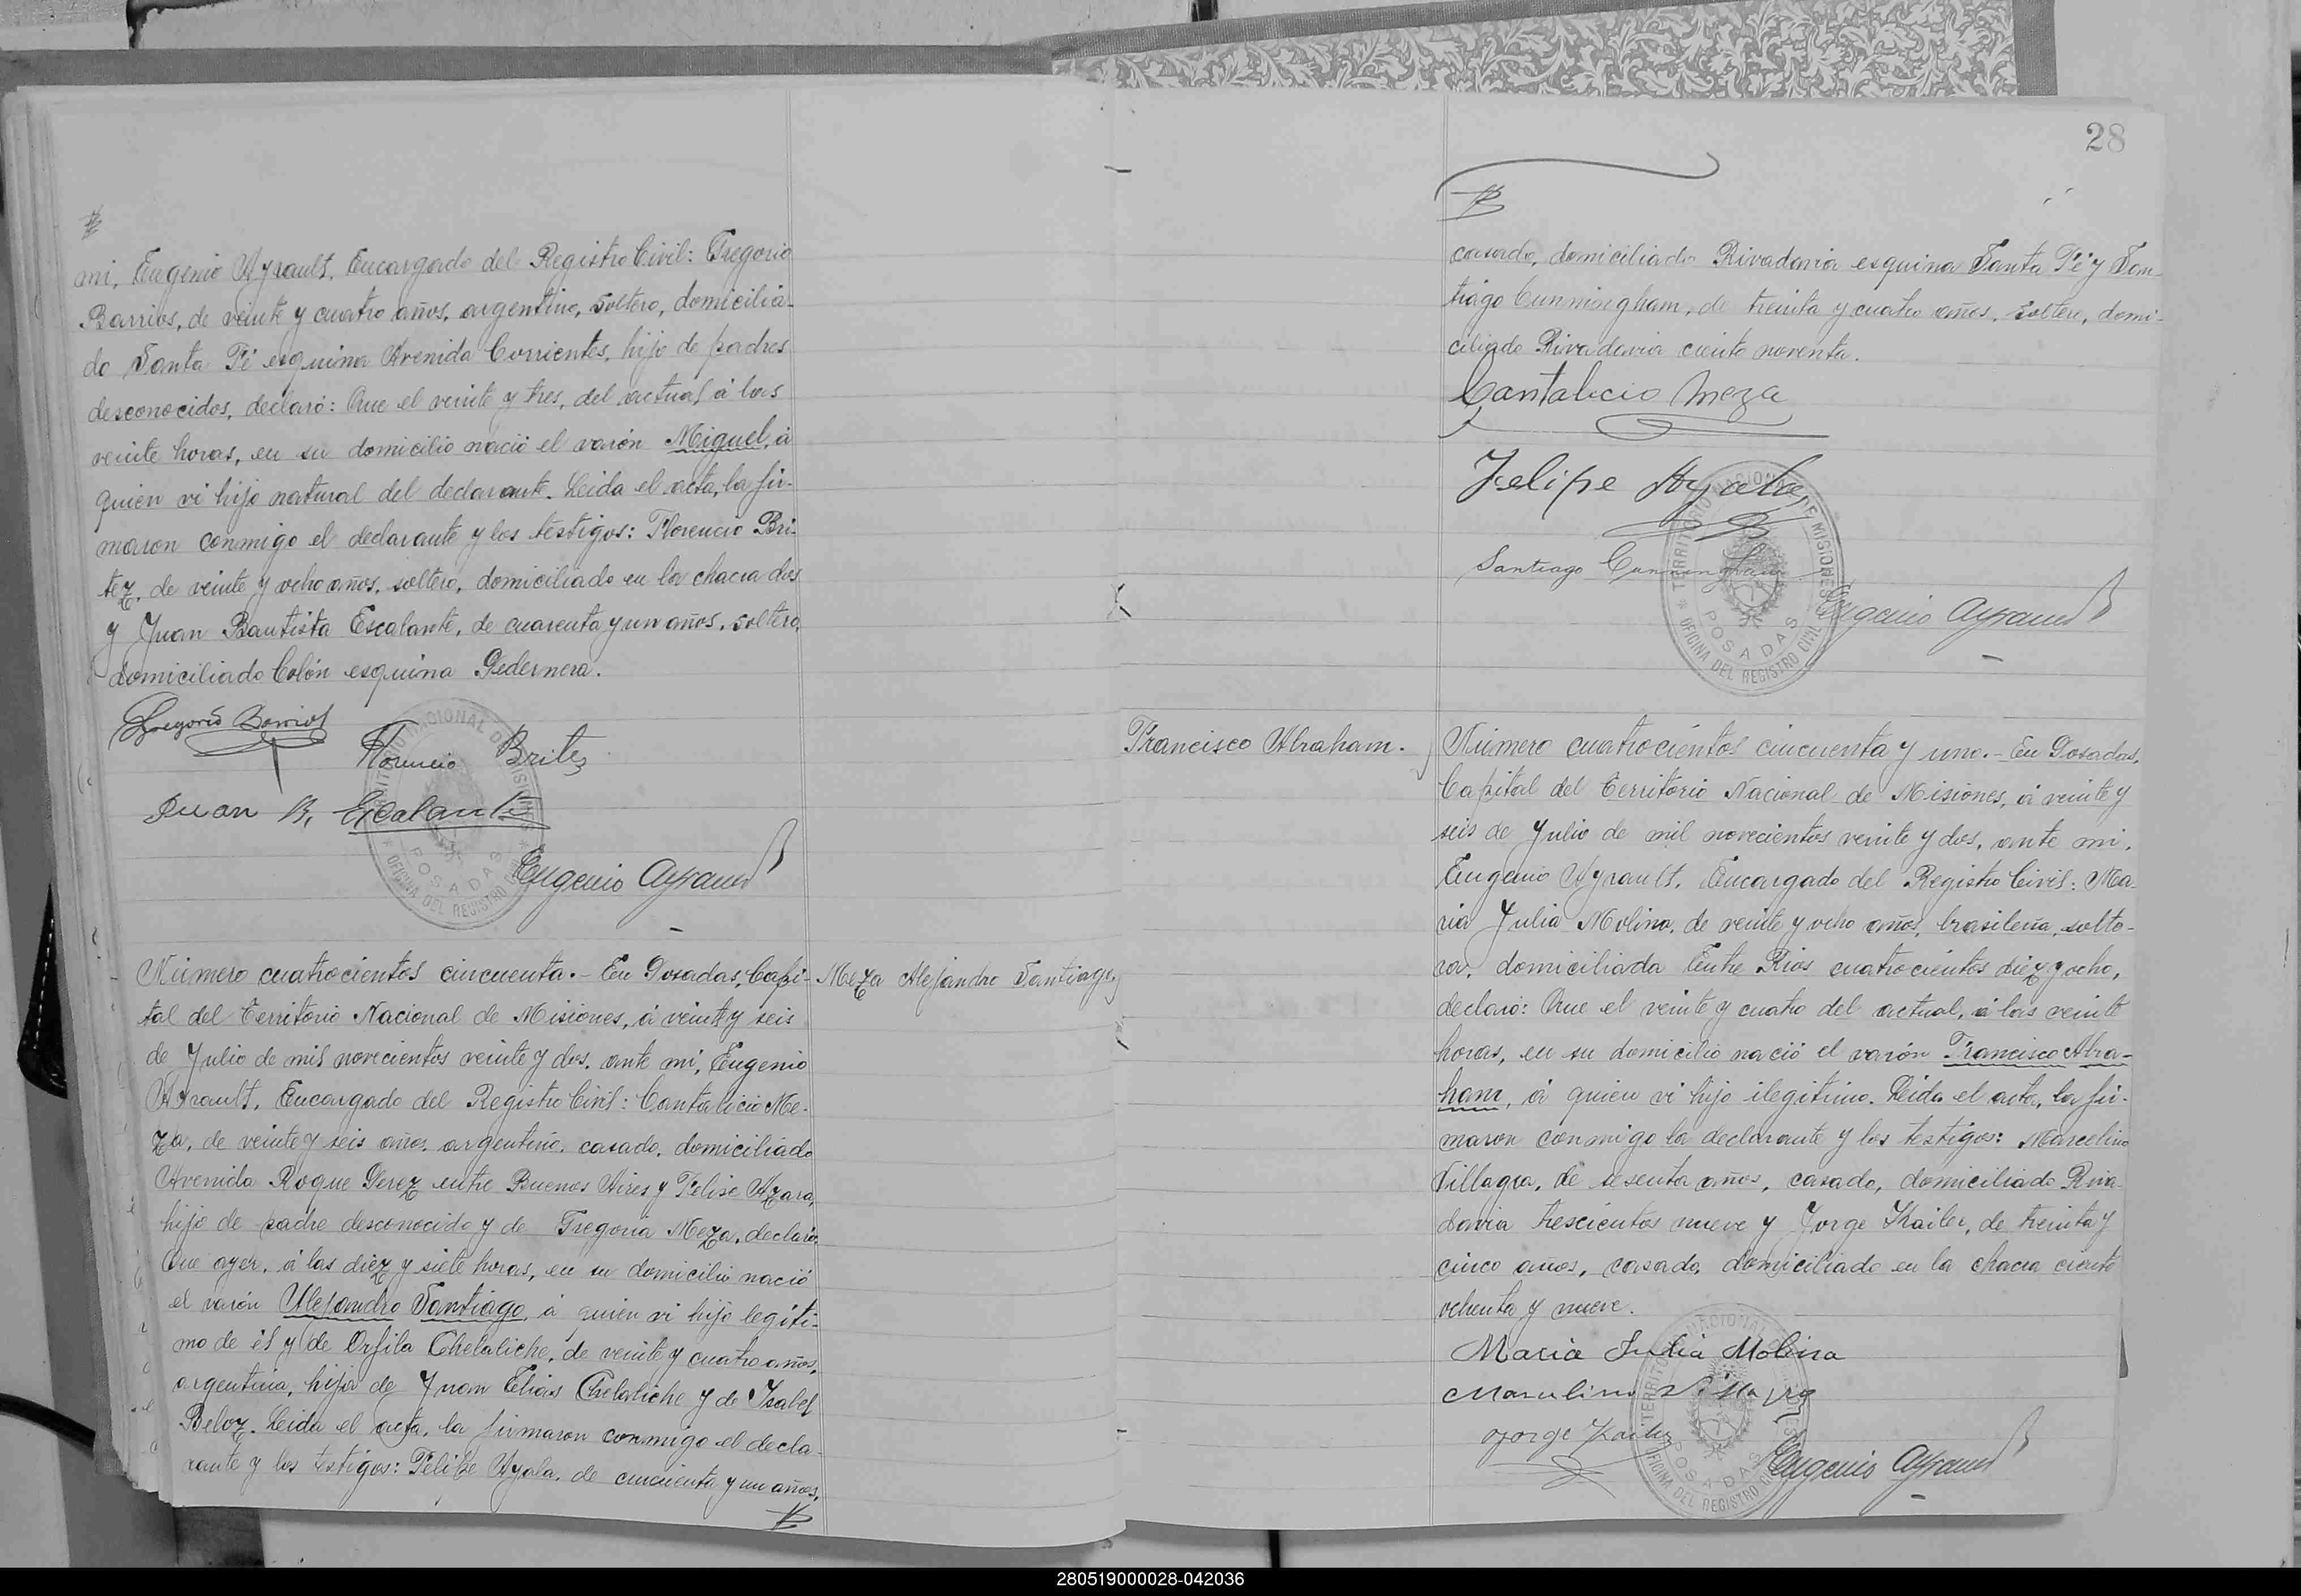 mi, Eugenio Ayrault, Encargado del Registro Civil: Gregorio
Barrios, de veinte y cuatro años, argentino, soltero, domicilia-
do Santa Fé esquina Avenida Corrientes, hijo de padres
desconocidos, declaró: Que el veinte y tres, del actual á las
veinte horas, en su domicilio nació el varón Miguel, á
quien vi hijo natural del declarante. Leida el acta, la fir-
maron conmigo el declarante y los testigos: Florencio Bri-
tez, de veinte y ocho años, soltero, domiciliado en la chacra dos
y Juan Bautista Escalante, de cuarenta y un años, soltero,
domiciliado Colón esquina Pedernera.
Gregorio Barrios
Florencio Britez
Juan B. Escalante
Eugenio Ayrault
TERRITORIO NACIONAL DE MISIONES
POSADAS
OFICINA DEL REGISTRO CIVIL
Número cuatrocientos cincuenta.- En Posadas, Capi-
Meza Alejandro Santiago
tal del Territorio Nacional de Misiones, á veinte y seis
de Julio de mil novecientos veinte y dos, ante mi, Eugenio
Ayrault, Encargado del Registro Civil: Cantalicio Me-
za, de veinte y seis años, argentino, casado, domiciliado
Avenida Roque Perez entre Buenos Aires y Felix Azara,
hijo de padre desconocido y de Gregoria Meza, declaró:
Que ayer, á las diez y siete horas, en su domicilio nació
el varón Alejandro Santiago, á quien vi hijo legíti-
mo de él y de Orfila Chelaliche, de veinte y cuatro años,
argentina, hija de Juan Elias Chelaliche y de Isabel
Beloz. Leida el acta, la firmaron conmigo el decla-
rante y los testigos: Felipe Ayala, de cincuenta y un años,
28
casado, domiciliado Rivadavia esquina Santa Fé y San-
tiago Cunningham, de treinta y cuatro años, soltero, domi-
ciliado Rivadavia ciento noventa.
Cantalicio Meza
Felipe Ayala
Santiago Cunningham
Eugenio Ayrault
TERRITORIO NACIONAL DE MISIONES
POSADAS
OFICINA DEL REGISTRO CIVIL
Francisco Abraham.
Número cuatrocientos cincuenta y uno.- En Posadas,
Capital del Territorio Nacional de Misiones, á veinte y
seis de Julio de mil novecientos veinte y dos, ante mi,
Eugenio Ayrault, Encargado del Registro Civil: Ma-
ria Julia Molina, de veinte y ocho años, brasileña, solte-
ra, domiciliada Entre Rios cuatrocientos diez y ocho,
declaró: Que el veinte y cuatro del actual, á las veinte
horas, en su domicilio nació el varón Francisco Abra-
ham, á quien vi hijo ilegitimo. Leida el acta, la fir-
maron conmigo la declarante y los testigos: Marcelino
Villagra, de sesenta años, casado, domiciliado Riva-
davia trescientos nueve y Jorge Kailer, de treinta y
cinco años, casado, domiciliado en la chacra ciento
ochenta y nueve.
Maria Julia Molina
Marcelino Villagra
Jorge Kailer
Eugenio Ayrault
TERRITORIO NACIONAL DE MISIONES
POSADAS
OFICINA DEL REGISTRO CIVIL
280519000028-042036